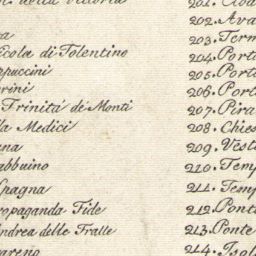 della Vittoria
icola di Tolentino
ppuccini
rini
Trinità de Monti
la Medici
una
abbuino
Spagna
ropaganda Fide
ndrea delle Fralle
areno
201.
202. Ava
203. Term
204. Porto
205. Porta
206. Port
207. Pira
208. Chies
209. Vest
210. Temp
211. Temp
212. Ponte
213. Ponte
214. Isol